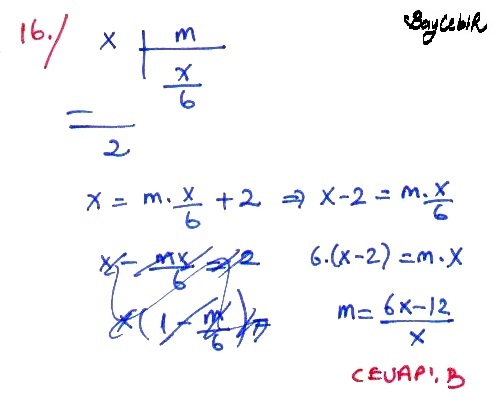 BayCebiR
16./ x | m
x/6
2
x = m · x/6 + 2 ⇒ x - 2 = m · x/6
x - mx/6 = 2 6.(x-2) = m.x
x(1 - m/6) = m = 6x-12/x
CEVAP: B